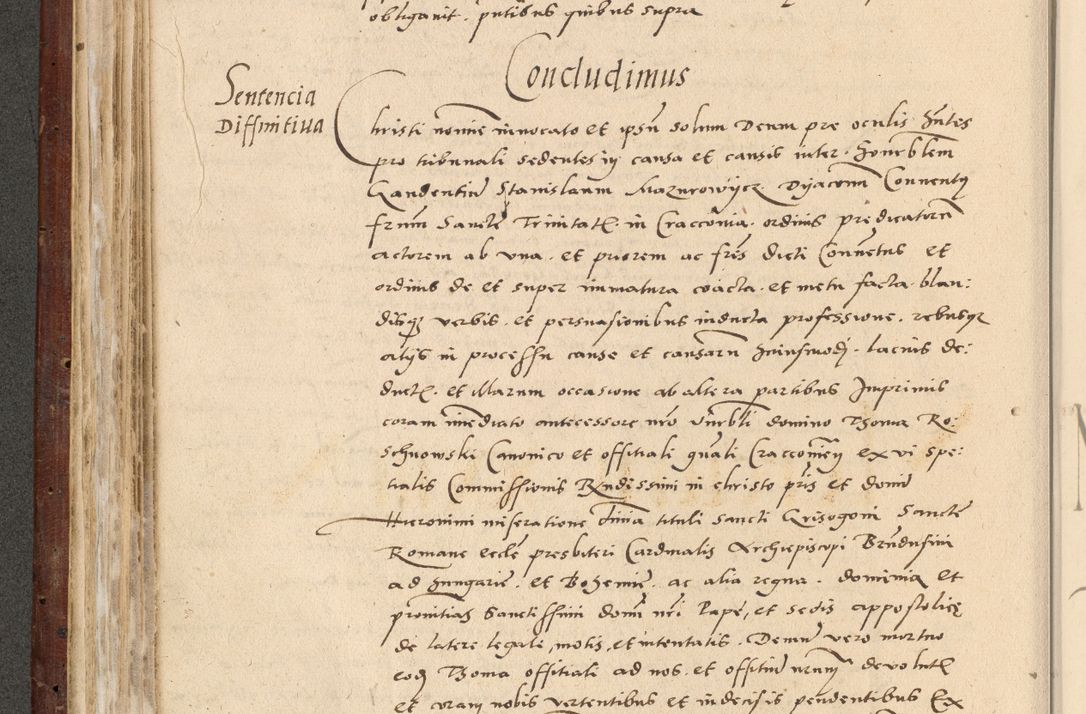 obliganit. pntibus quibus supra
Concludimus
Sentencia
Diffinitiua
Christi nomine inuocato et ipsu solum Deum pre oculis hntes
pro tribunali sedentes in causa et causis inter. Honrblem
Gaudentiu Stanislaum Mazurowijcz. Dyaconu Conuentus
frum Sancte Trinitatis in Cracconia. ordinis predicatoru
actorem ab vna. et priorem ac fres dicti Conuetus et
ordinis de et super inmatura coacta. et metu facta. blan:
disq verbis. et persuasionibus inducta professione. rebusqz
alijs in processu cause et causaru huiusmodj. lacius de:
ductis. et illarum occasione ab altera partibus Imprimis
coram imediato antecessore nro Venrbli domino Thoma Ro:
schnowski Canonico et offitiali gnali Cracconien ex vi spe:
tialis Commissionis Rndissimi in christo pris et domini
Hieronimi miseratione diuina tituli sancti Grisogoni Sancte
Romane eccle presbiteri Cardinalis Archiepiscopi Brundusini
ad Hungarie. et Bohemie. ac alia regna. dominia et
prouintias Sanctissimi domi nri Pape, et sedis appostolice
de latere legate, motis, et intentatis. Demu vero mortuo
eod Thoma offitiali ad nos. et offitiu nrum devolutis
et coram nobis vertentibus et indecisis pendentibus Ex